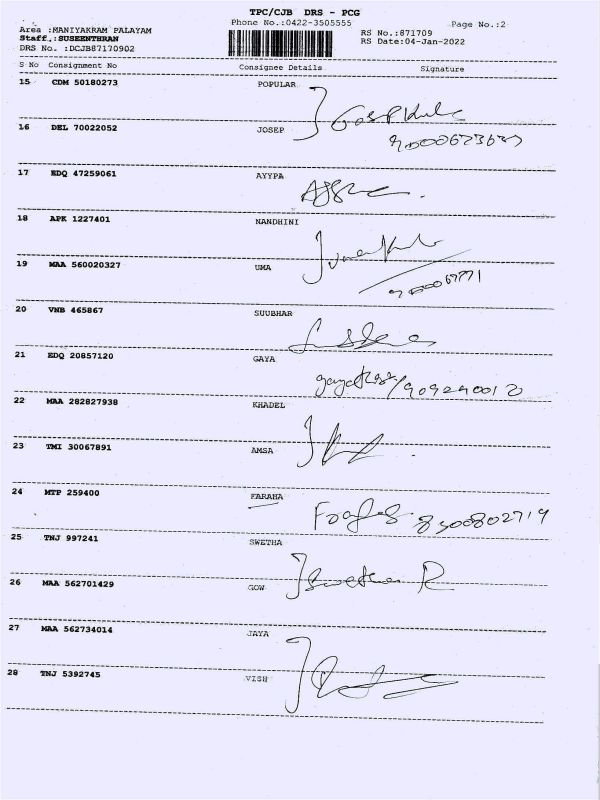 TPC/CJB DRS - PCG
Phone No.:0422-3505555
Page No.:2
Area :MANIYAKRAM PALAYAM
Staff.:SUSEENTHRAN
DRS No. :DCJB87170902
RS No.:871709
RS Date:04-Jan-2022
S No Consignment No Consignee Details Signature
15 CDM 50180273 POPULAR
16 DEL 70022052 JOSEP
17 EDQ 47259061 AYYPA
18 APK 1227401 NANDHINI
19 MAA 560020327 UMA
20 VNB 465867 SUUBHAR
21 EDQ 20857120 GAYA
22 MAA 282827938 KHADEL
23 TMI 30067891 AMSA
24 MTP 259400 FARAHA
8300802719
25 TNJ 997241 SWETHA
26 MAA 562701429 GOW
Swetha R
27 MAA 562734014 JAYA
28 TNJ 5392745 VISH